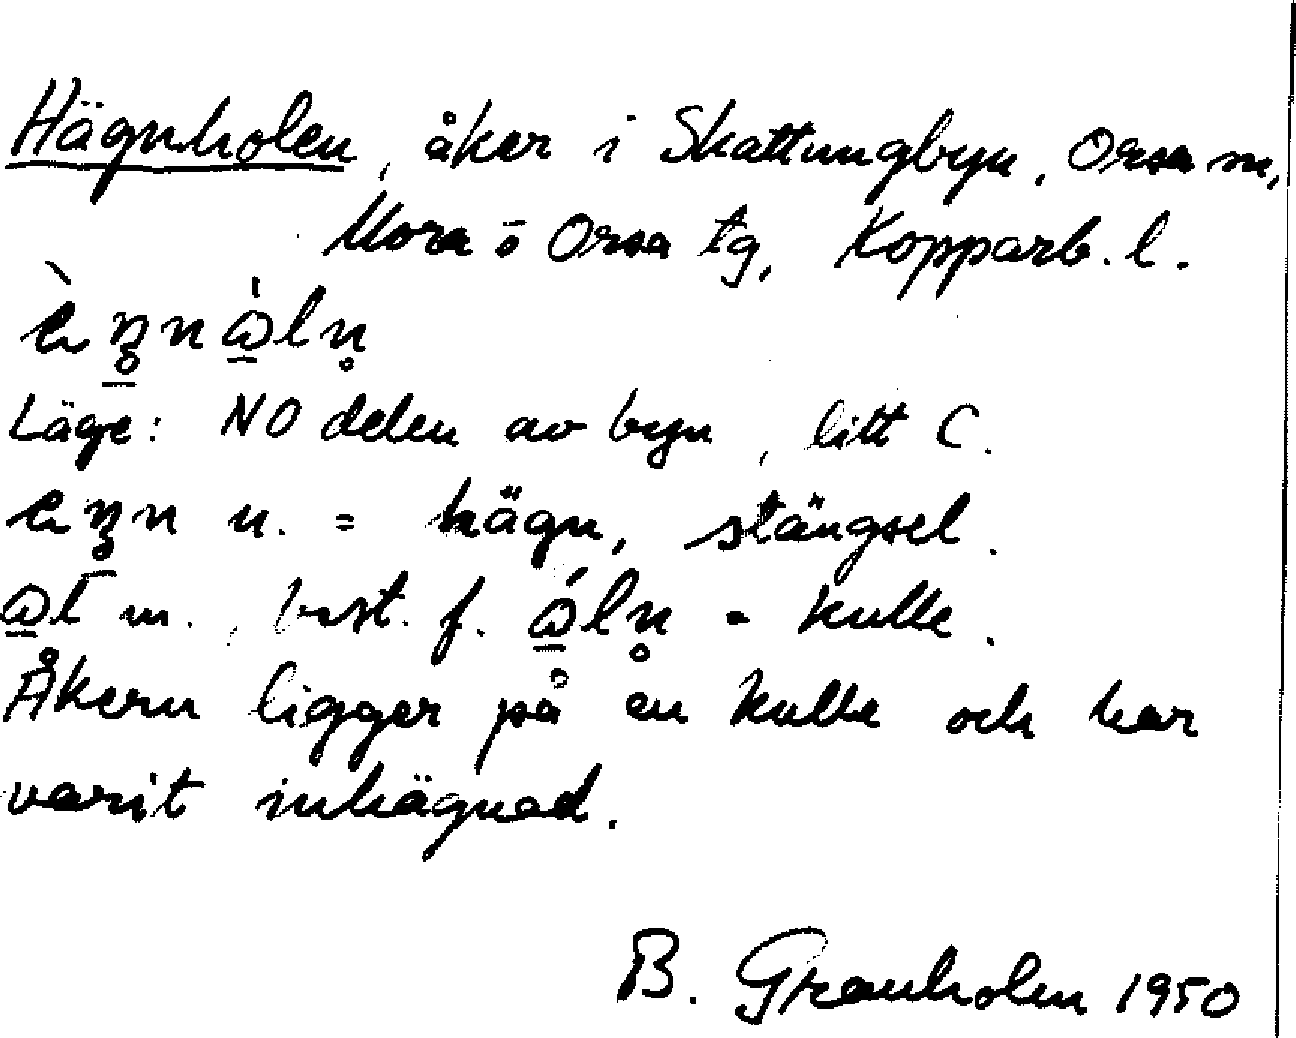 Hägnholen, åker i Skattungbyn, Orsa sn,
Mora o Orsa tg, Kopparb. l.
Läge: NO delen av byn, litt C.
n. = hägn, stängsel.
m., best. f. = kulle.
Åkern ligger på en kulle och har
varit inhägnad.
B. Granholm 1950